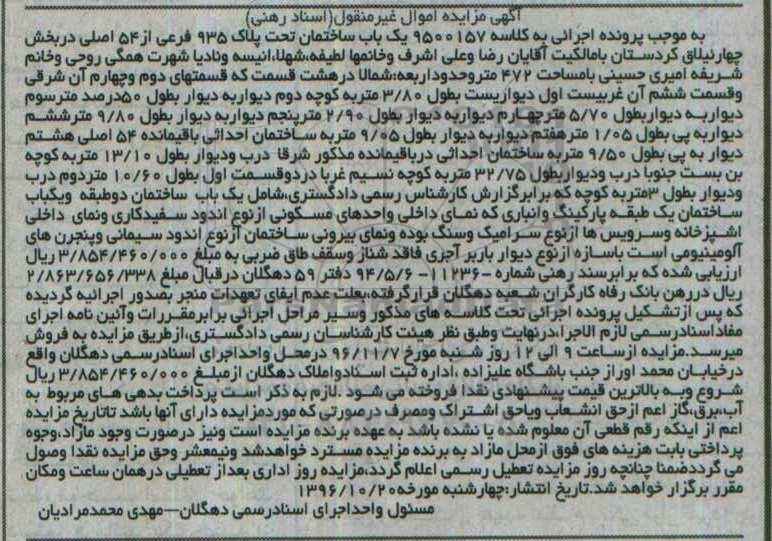 آگهی مزایده اموال غیرمنقول(اسناد رهنی)
به موجب پرونده اجرائی به کلاسه ۹۵۰۰۱۵۷ یک باب ساختمان تحت پلاک ۹۳۵ فرعی از۵۴ اصلی دربخش
چهارئیلاق کردستان بامالکیت آقایان رضا وعلی اشرف وخانمها لطیفه،شهلا،انیسه ونادیا شهرت همگی روحی وخانم
شریفه امیری حسینی بامساحت ۴۷۲ متروحدوداربعه:شمالا درهشت قسمت که قسمتهای دوم وچهارم آن شرقی
وقسمت ششم آن غربیست اول دیواریست بطول ۳/۸۰ متربه کوچه دوم دیواربه دیوار بطول ۵۰درصد مترسوم
دیواربه دیواربطول ۵/۷۰ مترچهارم دیواربه دیوار بطول ۲/۹۰ مترپنجم دیواربه دیوار بطول ۹/۸۰ مترششم
دیواربه پی بطول ۱/۰۵ مترهفتم دیواربه دیوار بطول ۹/۰۵ متربه ساختمان احداثی باقیمانده ۵۴ اصلی هشتم
دیوار به پی بطول ۹/۵۰ متربه ساختمان احداثی درباقیمانده مذکور شرقا درب ودیوار بطول ۱۳/۱۰ متربه کوچه
بن بست جنوبا درب ودیواربطول ۳۲/۷۵ متربه کوچه نسیم غربا دردوقسمت اول بطول ۱۰/۶۰ متردوم درب
ودیوار بطول ۳متربه کوچه که برابرگزارش کارشناس رسمی دادگستری،شامل یک باب ساختمان دوطبقه ویکباب
ساختمان یک طبقه پارکینگ وانباری که نمای داخلی واحدهای مسکونی ازنوع اندود سفیدکاری ونمای داخلی
اشپزخانه وسرویس ها ازنوع سرامیک وسنگ بوده ونمای بیرونی ساختمان ازنوع اندود سیمانی وپنجرن های
آلومینیومی است باسازه ازنوع دیوار باربر آجری فاقد شناز وسقف طاق ضربی به مبلغ ۳/۸۵۴/۴۶۰/۰۰۰ ریال
ارزیابی شده که برابرسند رهنی شماره ۱۱۲۳۶– ۹۴/۵/۶– دفتر ۵۹ دهگلان درقبال مبلغ ۲/۸۶۳/۶۵۶/۳۳۸
ریال دررهن بانک رفاه کارگران شعبه دهگلان قرارگرفته،بعلت عدم ایفای تعهدات منجر بصدور اجرائیه گردیده
که پس ازتشکیل پرونده اجرائی تحت کلاسه های مذکور وسیر مراحل اجرائی برابرمقررات وآئین نامه اجرای
مفاداسنادرسمی لازم الاجرا،درنهایت وطبق نظر هیئت کارشناسان رسمی دادگستری،ازطریق مزایده به فروش
میرسد.مزایده ازساعت ۹ الی ۱۲ روز شنبه مورخ ۹۶/۱۱/۷ درمحل واحداجرای اسنادرسمی دهگلان واقع
درخیابان محمد اوراز جنب باشگاه علیزاده ،اداره ثبت اسنادواملاک دهگلان ازمبلغ ۳/۸۵۴/۴۶۰/۰۰۰ ریال
شروع وبه بالاترین قیمت پیشنهادی نقدا فروخته می شود .لازم به ذکر است پرداخت بدهی های مربوط به
آب،برق،گاز اعم ازحق انشعاب ویاحق اشتراک ومصرف درصورتی که موردمزایده دارای آنها باشد تاتاریخ مزایده
اعم از اینکه رقم قطعی آن معلوم شده یا نشده باشد به عهده برنده مزایده است ونیز درصورت وجود مازاد،وجوه
پرداختی بابت هزینه های فوق ازمحل مازاد به برنده مزایده مسترد خواهدشد ونیمعشر وحق مزایده نقدا وصول
می گرددضمنا چنانچه روز مزایده تعطیل رسمی اعلام گردد،مزایده روز اداری بعداز تعطیلی درهمان ساعت ومکان
مقرر برگزار خواهد شد.تاریخ انتشار:چهارشنبه مورخه۱۳۹۶/۱۰/۲۰
مسئول واحداجرای اسنادرسمی دهگلان–مهدی محمدمرادیان